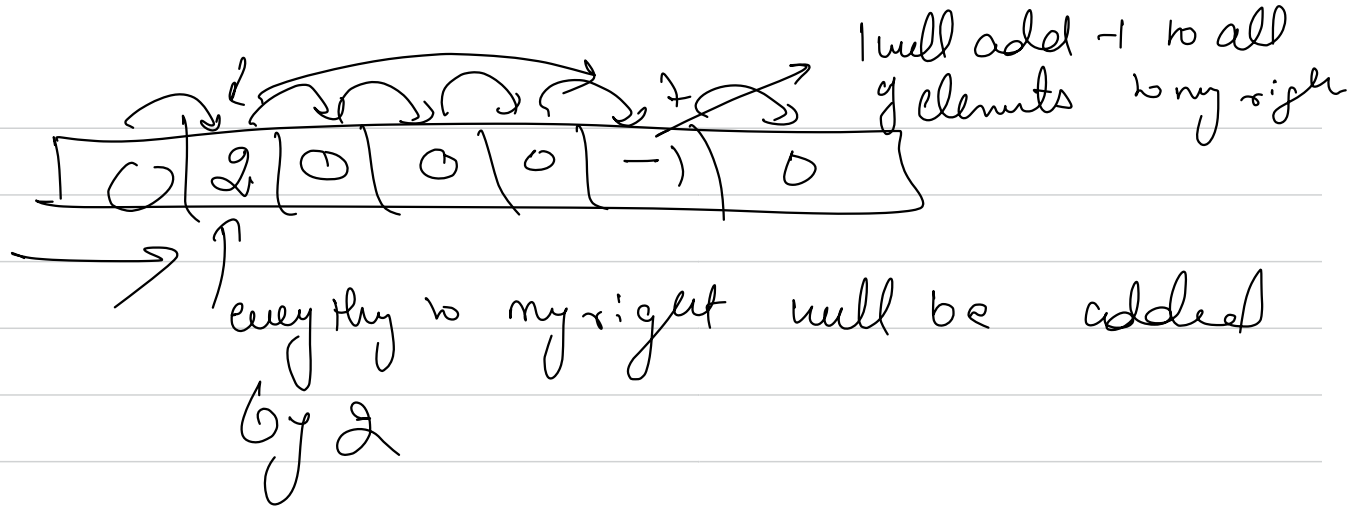 I will add -1 to all
elements to my right
0 2 0 0 0 -1 0
every thy to my right will be added
by 2